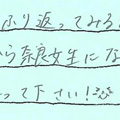 ふり返ってみる
から奈良女生にな
って下さい!